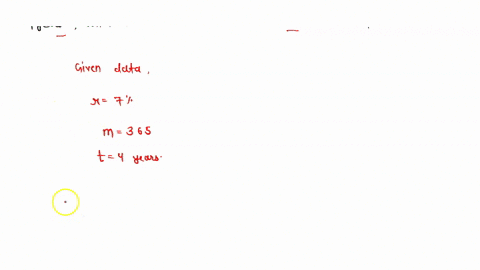 Given data,
r = 7%
m = 365
t = 4 years.